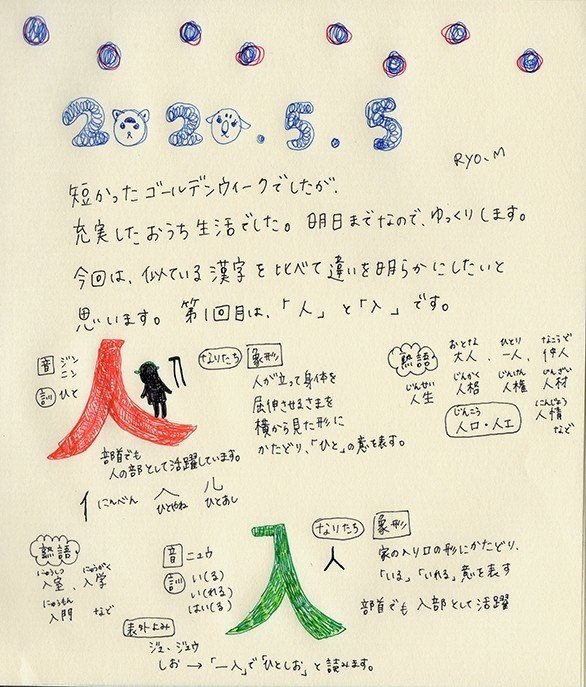 2020.5.5
RYO.M
短かったゴールデンウィークでしたが、
充実したおうち生活でした。明日までなので、ゆっくりします。
今回は、似ている漢字を比べて違いを明らかにしたいと
思います。第1回目は、「人」と「入」です。
人
音 ジン
ニン
訓 ひと
なりたち 象形
人が立って身体を
屈伸させるさまを
横から見た形に
かたどり、「ひと」の意を表す。
熟語
おとな ひとり なこうど
大人、一人、仲人
じんせい じんかく じんけん じんざい
人生 人格 人権 人材
じんこう にんじょう
人口・人工 人情
など
部首でも
人の部として活躍しています。
亻 にんべん 𠆢 ひとやね 儿 ひとあし
入
熟語
にゅうしつ にゅうがく
入室、入学
にゅうもん
入門 など
音 ニュウ
訓 い(る)
い(れる)
はい(る)
なりたち 象形
家の入り口の形にかたどり、
「いる」「いれる」意を表す
部首でも 入部として活躍
表外よみ
ジュ、ジュウ
しお → 「一入」で「ひとしお」と読みます。